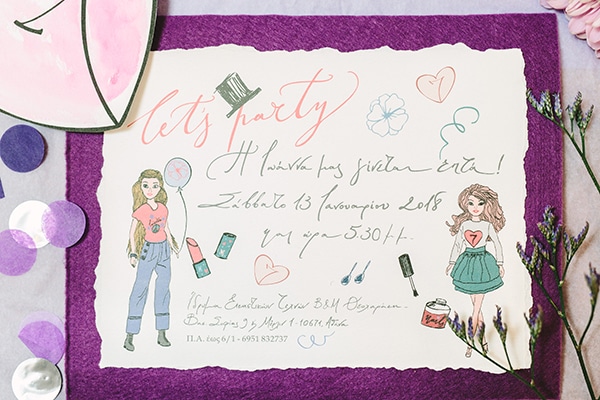 let's party
Η Ιωάννα μας γίνεται επτά!
Σάββατο 13 Ιανουαρίου 2018
και ώρα 5:30 μ.μ.
Ίδρυμα Εικαστικών Τεχνών Β&Μ Θεοχαράκη
Βασ. Σοφίας 9 & Μέρλιν 1 - 10671, Αθήνα
Π.Α. έως 6/1 - 6951 832737
7
7